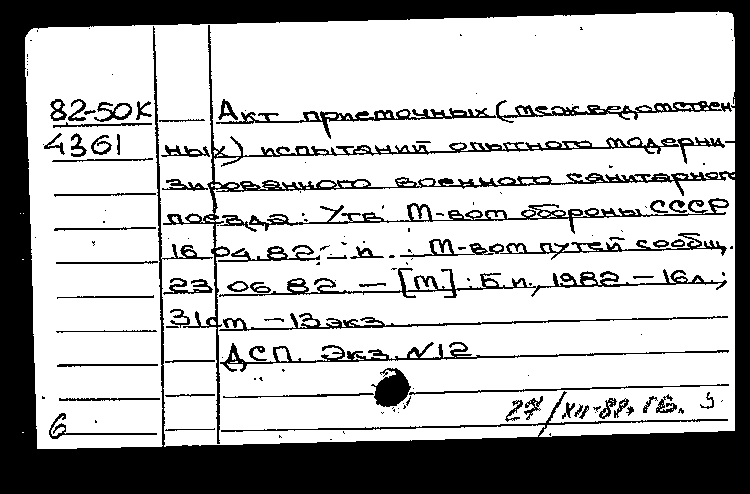 82-50К Акт приемочных (межведомствен-
4361 ных) испытаний опытного модерни-
зированного военного санитарного
поезда: Утв. М-вом обороны СССР
16.04.82, и М-вом путей сообщ.
23.06.82. — [М.]: Б.и., 1982. — 16л.;
31см. — 13 экз.
ДСП. Экз. N12.
27/XII-82. ГВ.
6